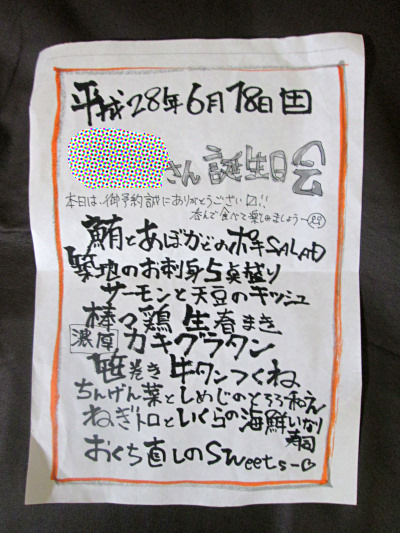 平成28年6月18日土
さん誕生日会
本日は、御予約誠にありがとうござい〼!!
呑んで食べて楽しみましょう〜
鮪とあぼかどのポキSALAD
築地のお刺身5点盛り
サーモンと天豆のキッシュ
棒々鶏生春まき
濃厚カキグラタン
笹巻き牛タンつくね
ちんげん菜としめじのとろろ和え
ねぎトロといくらの海鮮いなり寿司
おくち直しのSweets〜♡